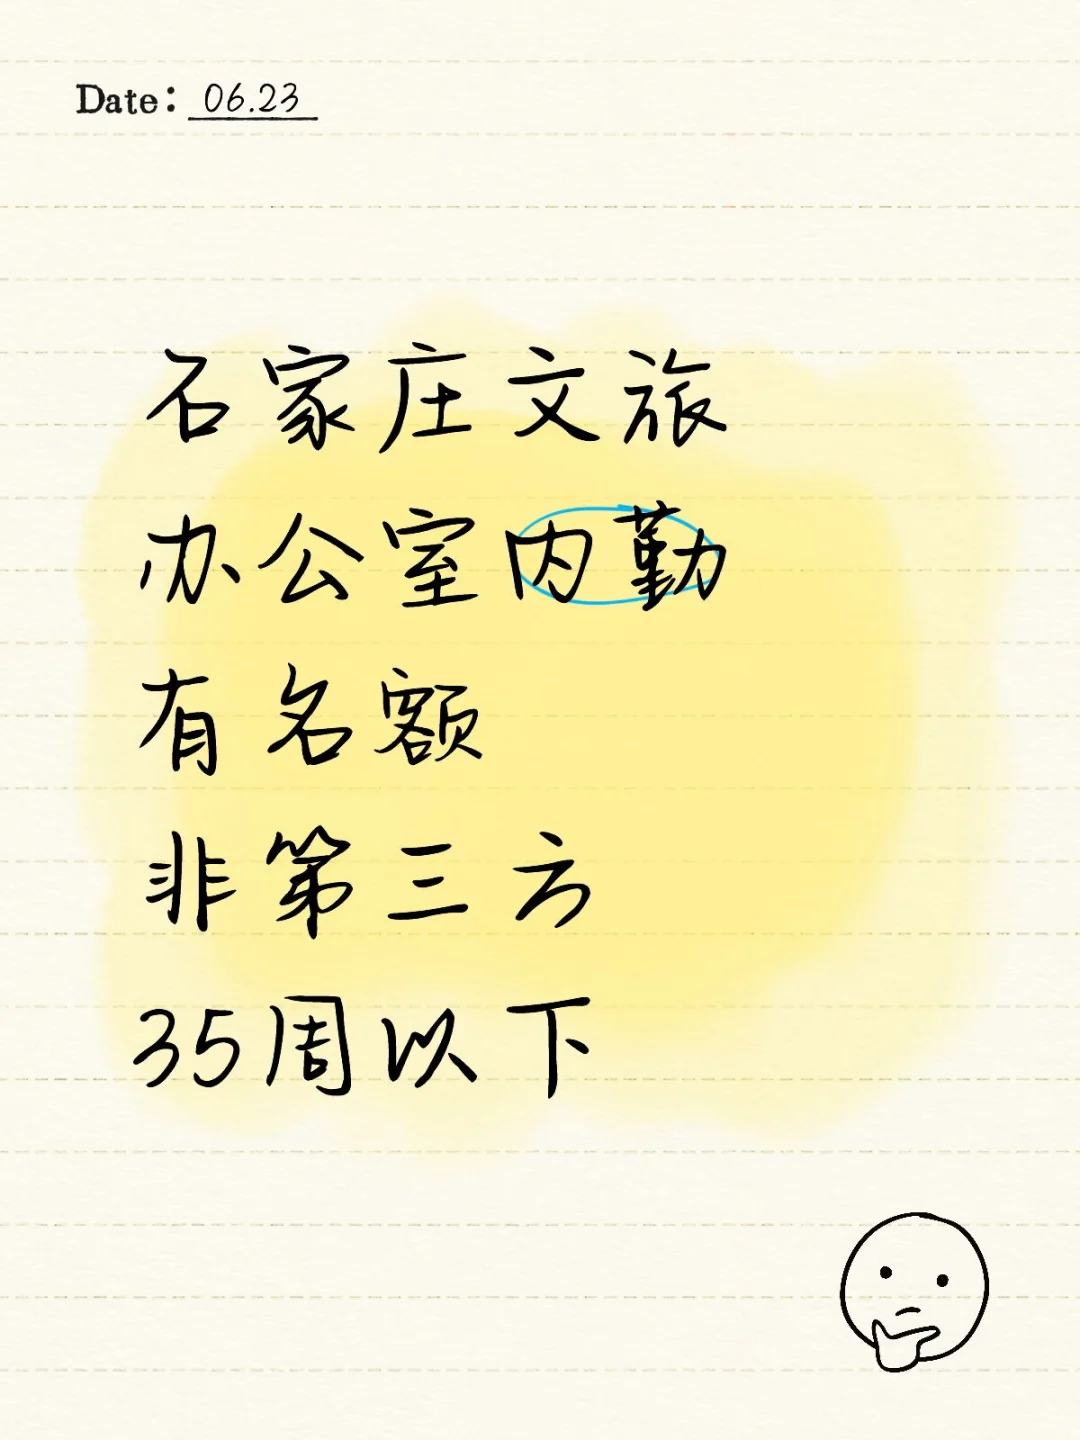 Date: 06.23
石家庄文旅
办公室内勤
有名额
非第三方
35周以下